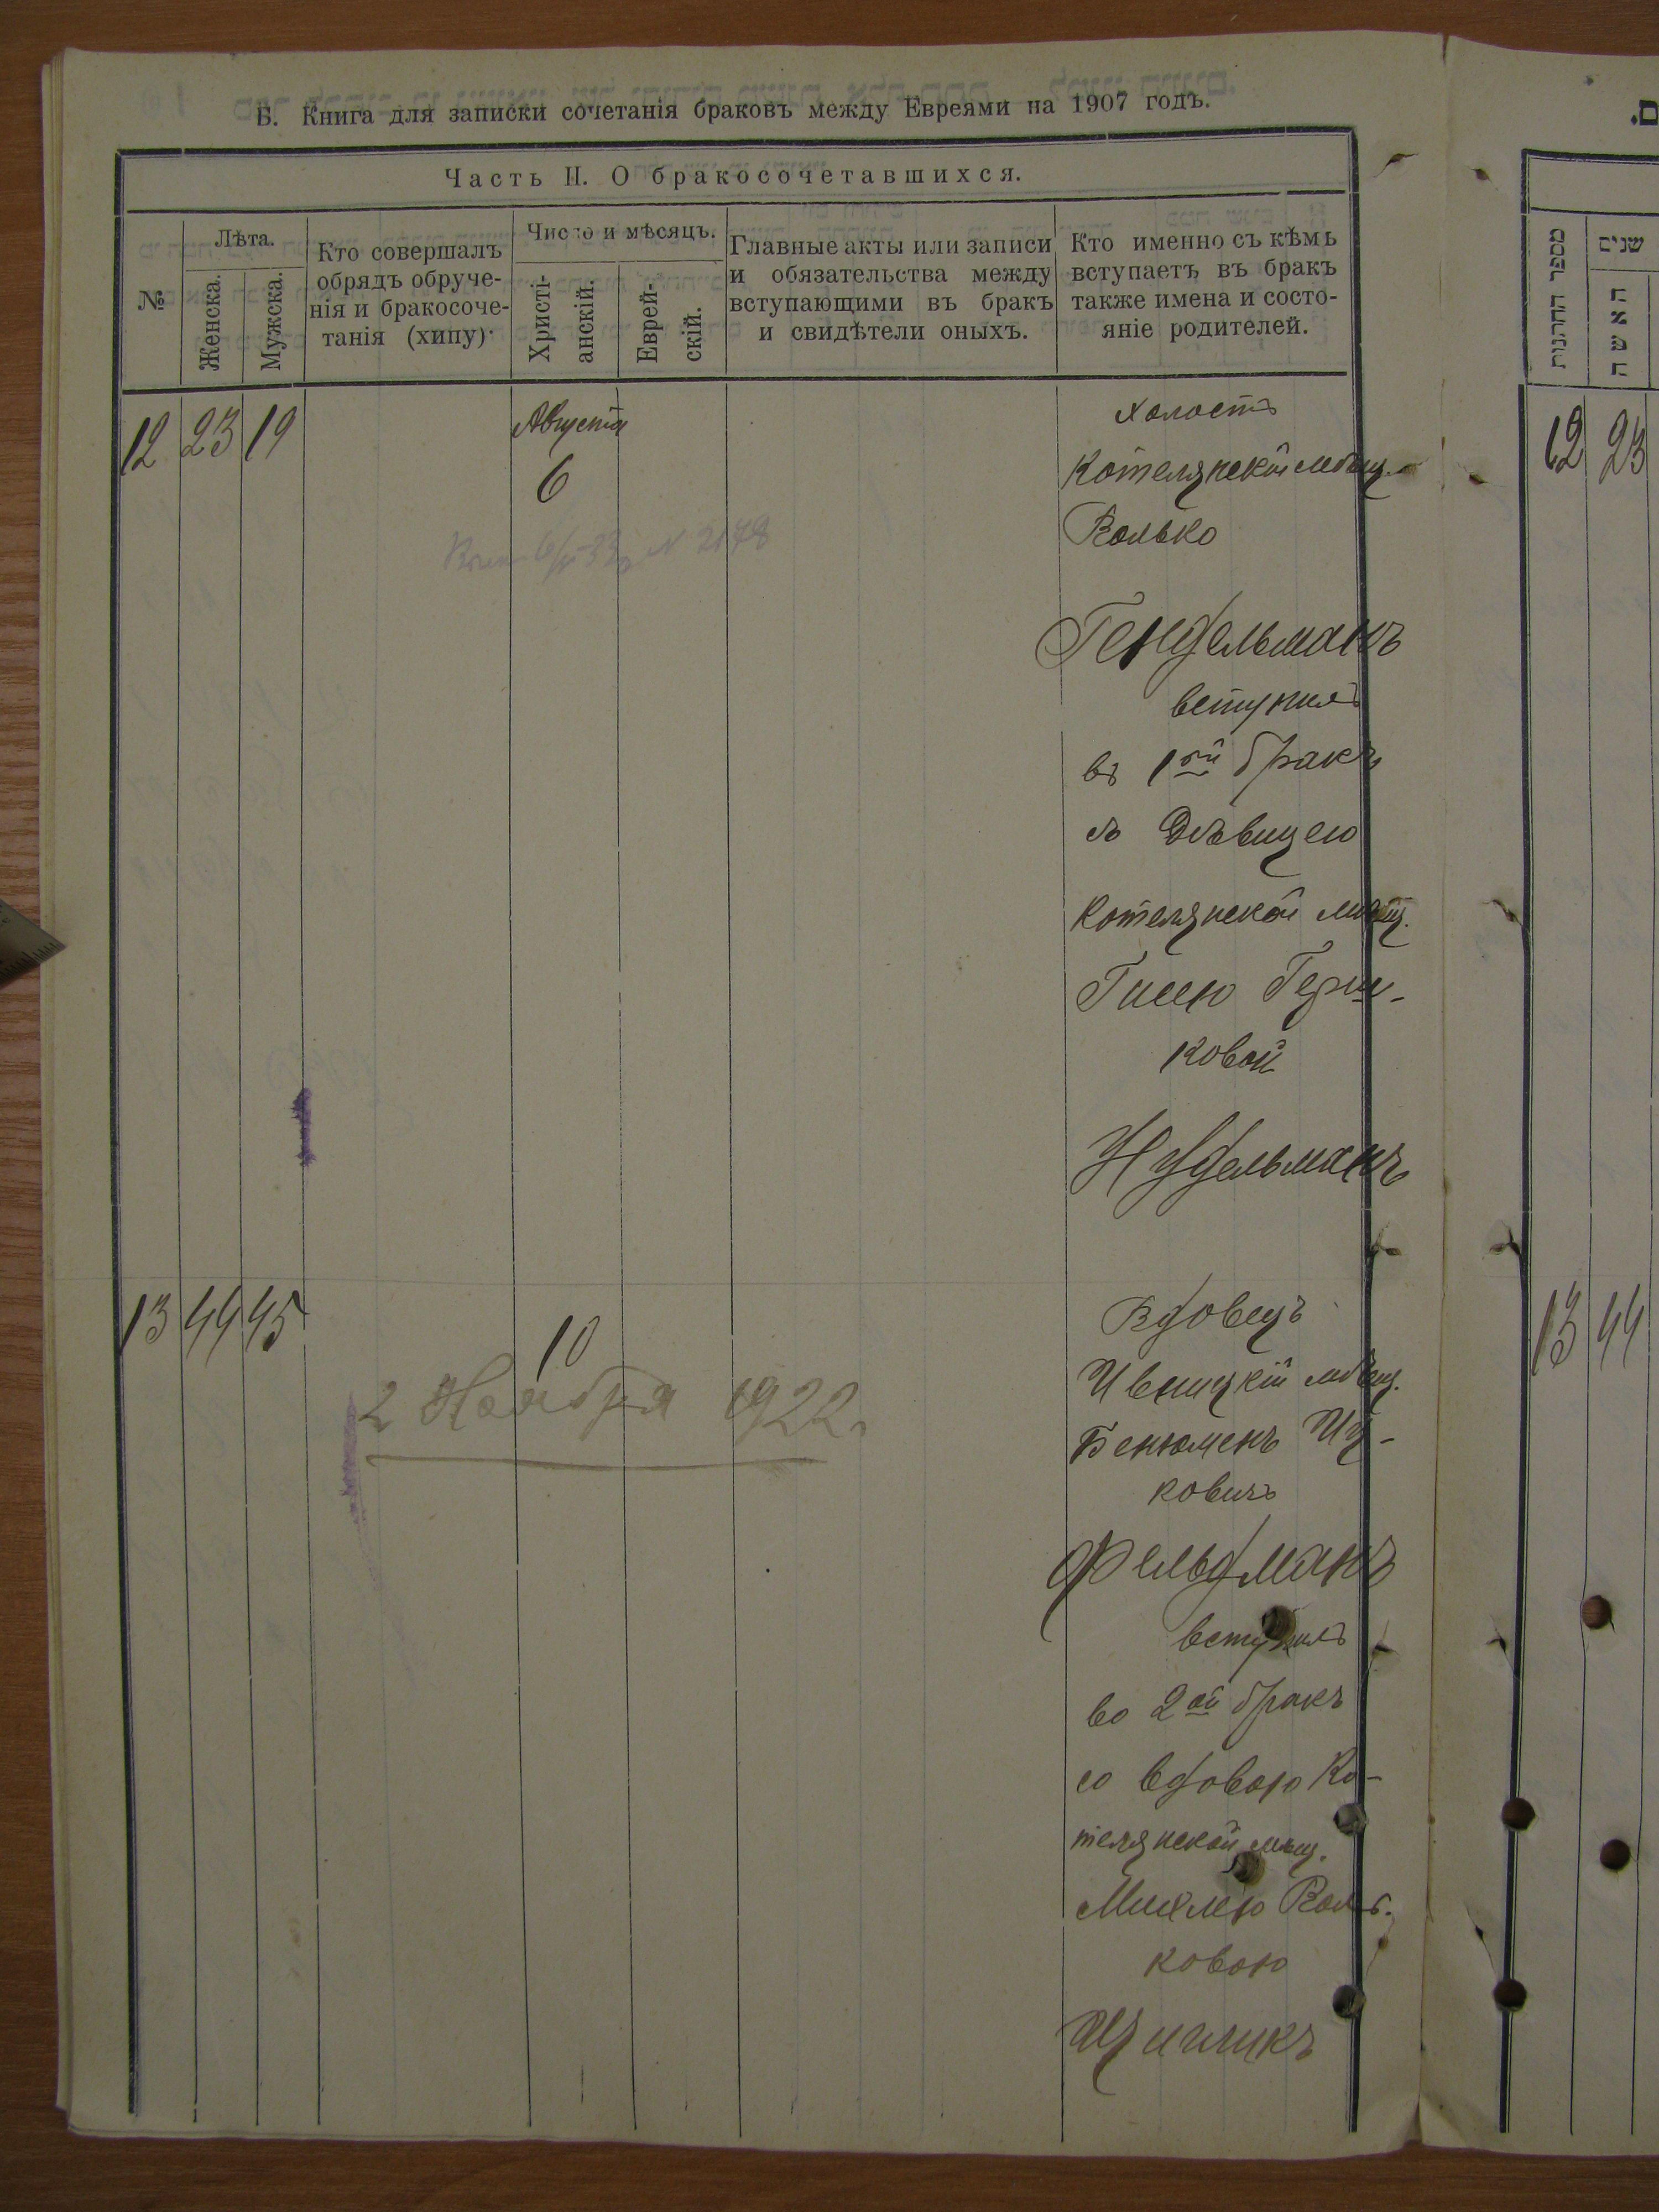 Б. Книга для записки сочетанія браковъ между Евреями на 1907 годъ.
Часть II. О бракосочетавшихся.
№
Лѣта.
Женска.
Мужска.
Кто совершалъ
обрядъ обруче-
нія и бракосоче-
танія (хипу)
Число и мѣсяцъ.
Христі-
анскій.
Еврей-
скій.
Главные акты или записи
и обязательства между
вступающими въ бракъ
и свидѣтели оныхъ.
Кто именно съ кѣмъ
вступаетъ въ бракъ
также имена и состо-
яніе родителей.
12 23 19
Августа
6
N 2178
холостъ
Котелянскій мѣщ.
Волько
Гендельманъ
вступилъ
въ 1ый бракъ
съ Дѣвицею
Котелянской мѣщ.
Гисею Герш-
ковой
Нудельманъ
13 44 45
10
2 Ноября 1922 г.
Вдовецъ
Ивницкій мѣщ.
Бенюменъ Иц-
ковичъ
Фельдманъ
вступилъ
во 2ой бракъ
со вдовою Ко-
телянской мѣщ.
Михлею Воль-
ковою
מספר החתונות
שנים
האשה
12 23
13 44